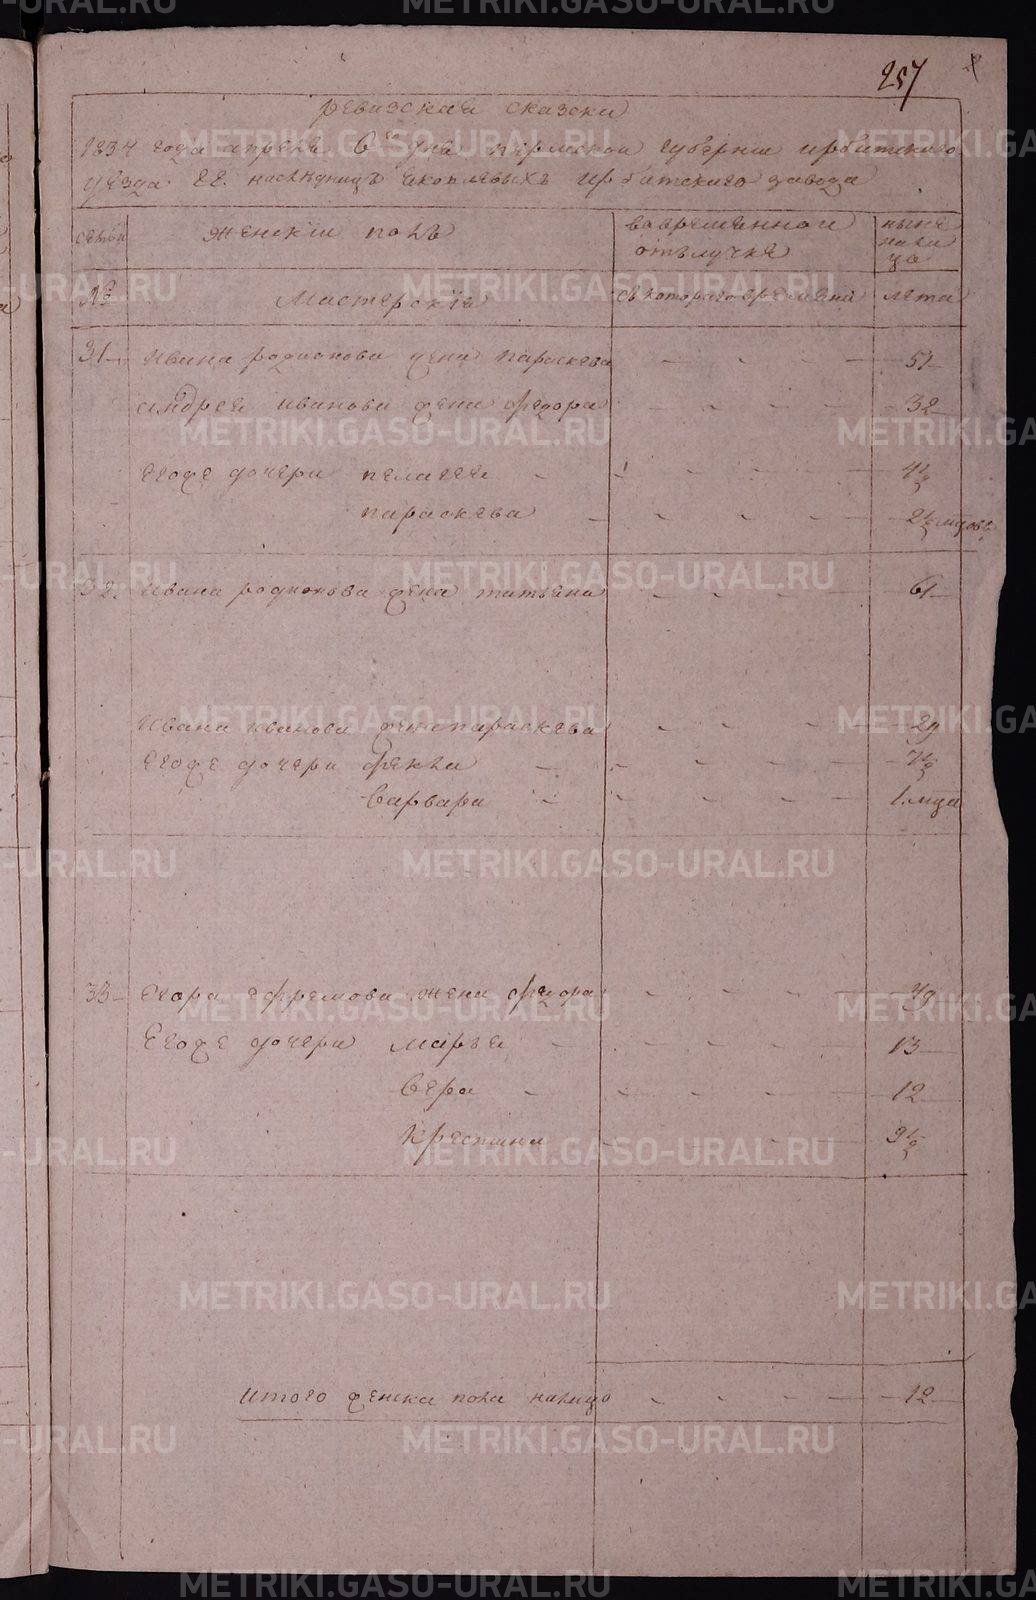 257
ревизская сказски
1834 года апреля 6 дня пермской губернии ирбитскаго
уезда ГГ. наследницъ яковлевыхъ ирбитскаго завода
семьи женскiй полъ вовременной отълучке ныне налицо
№ Мастерскiе съ котораго времяни лета
31 ивана родионова жена параскева 51
андрея иванова жена федора 32
егоже дочери пелагея 4½
параскева 2½ мцовъ
32. ивана родионова жена татьяна 61
ивана иванова жена параскева 29
егоже дочери фекла 7½
варвара 1. мца
33 Егора ефремова жена федора
Егоже дочери марья 13
вера 12
крестина 9½
итого женска пола налицо 12
METRIKI.GASO-URAL.RU